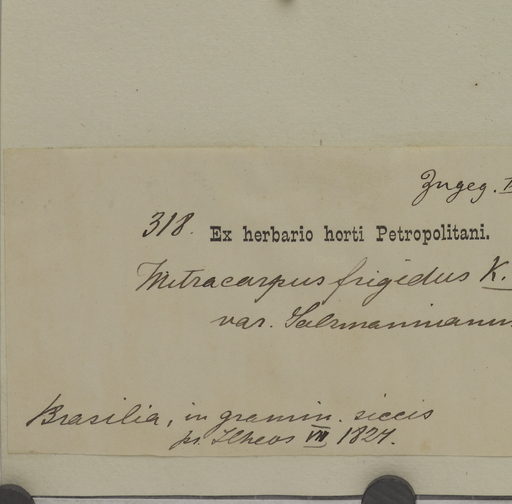 Zugeg.
318. Ex herbario horti Petropolitani.
Mitracarpus frigidus K.
var. Salzmannianus
Brasilia, in gramin. siccis
pr. Ilheos VII 1824.